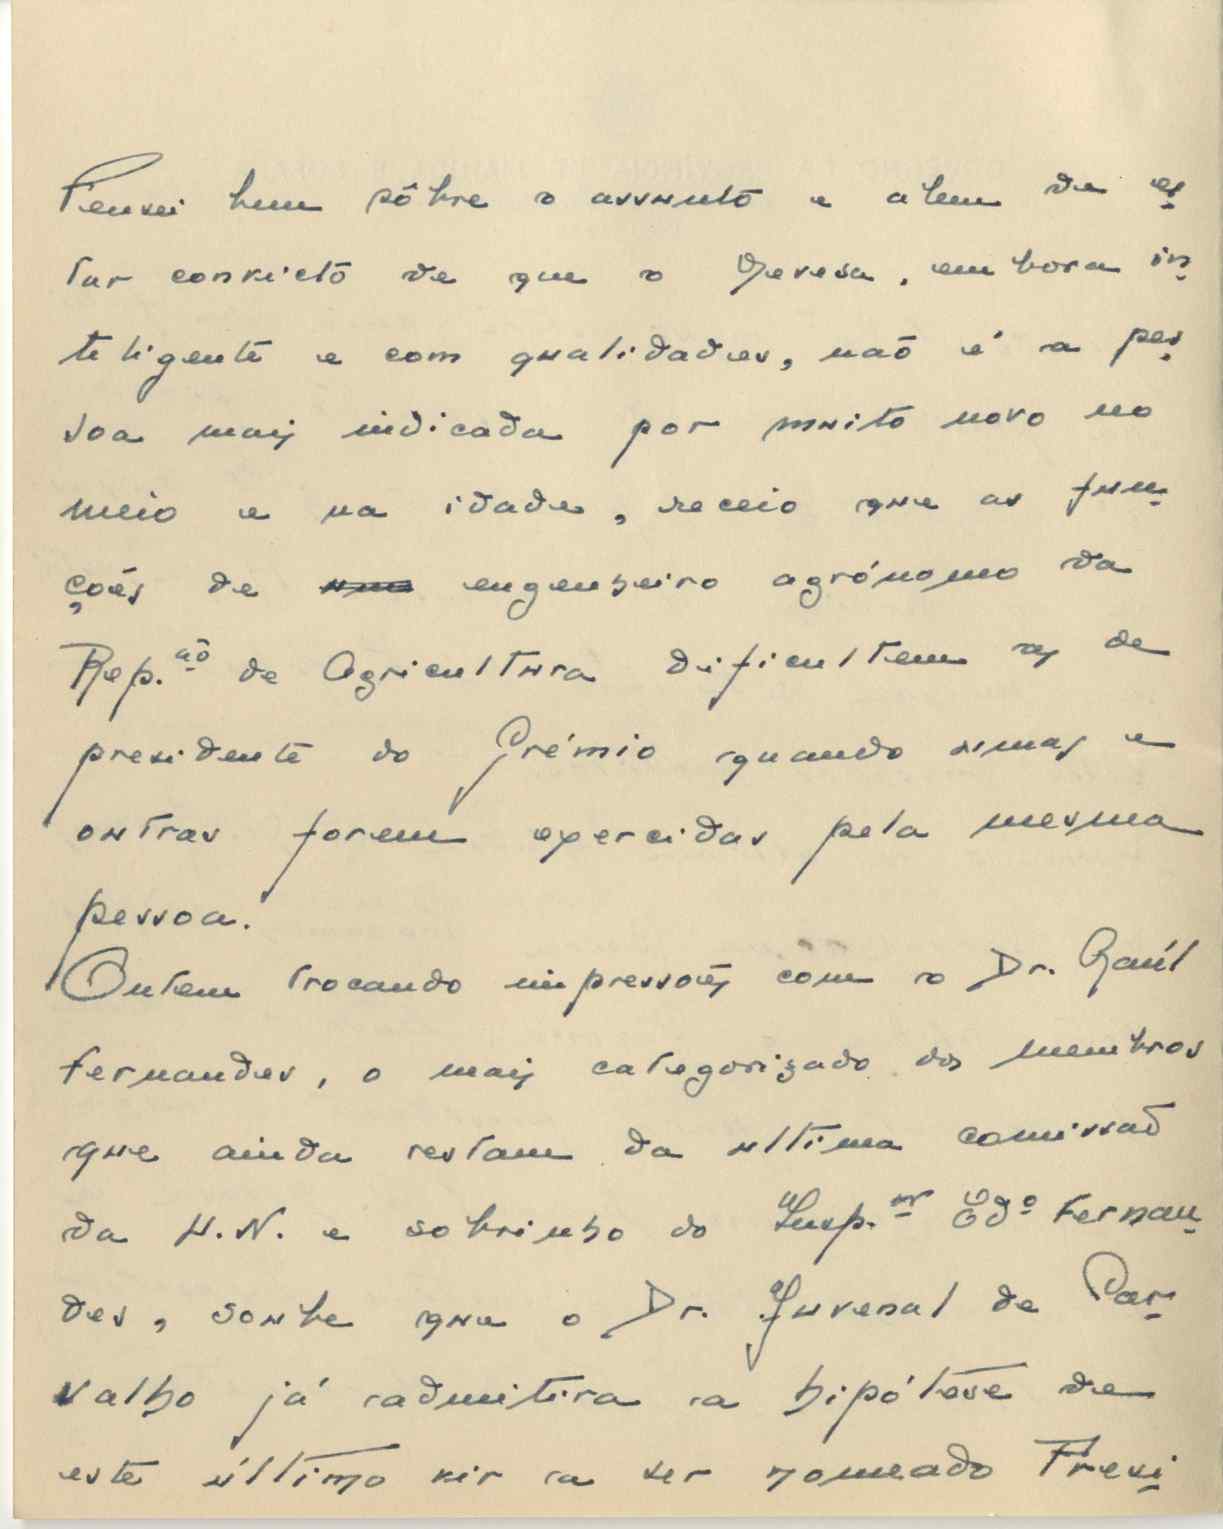 Pensei bem sôbre o assunto e alem de es
tar convicto de que o Devesa, embora in
teligente e com qualidades, não é a pes
soa mais indicada por muito novo no
meio e na idade, receio que as fun
ções de engenheiro agrónomo da
Rep.ão de Agricultura dificultem as de
presidente do Grémio quando umas e
outras forem exercidas pela mesma
pessoa.
Ontem trocando impressões com o Dr. Raúl
Fernandes, o mais categorizado dos membros
que ainda restam da ultima comissão
da U.N. e sobrinho do Insp.or Edo Fernan
des, soube que o Dr. Juvenal de Car
valho já admitira a hipótese de
este último vir a ser nomeado Presi